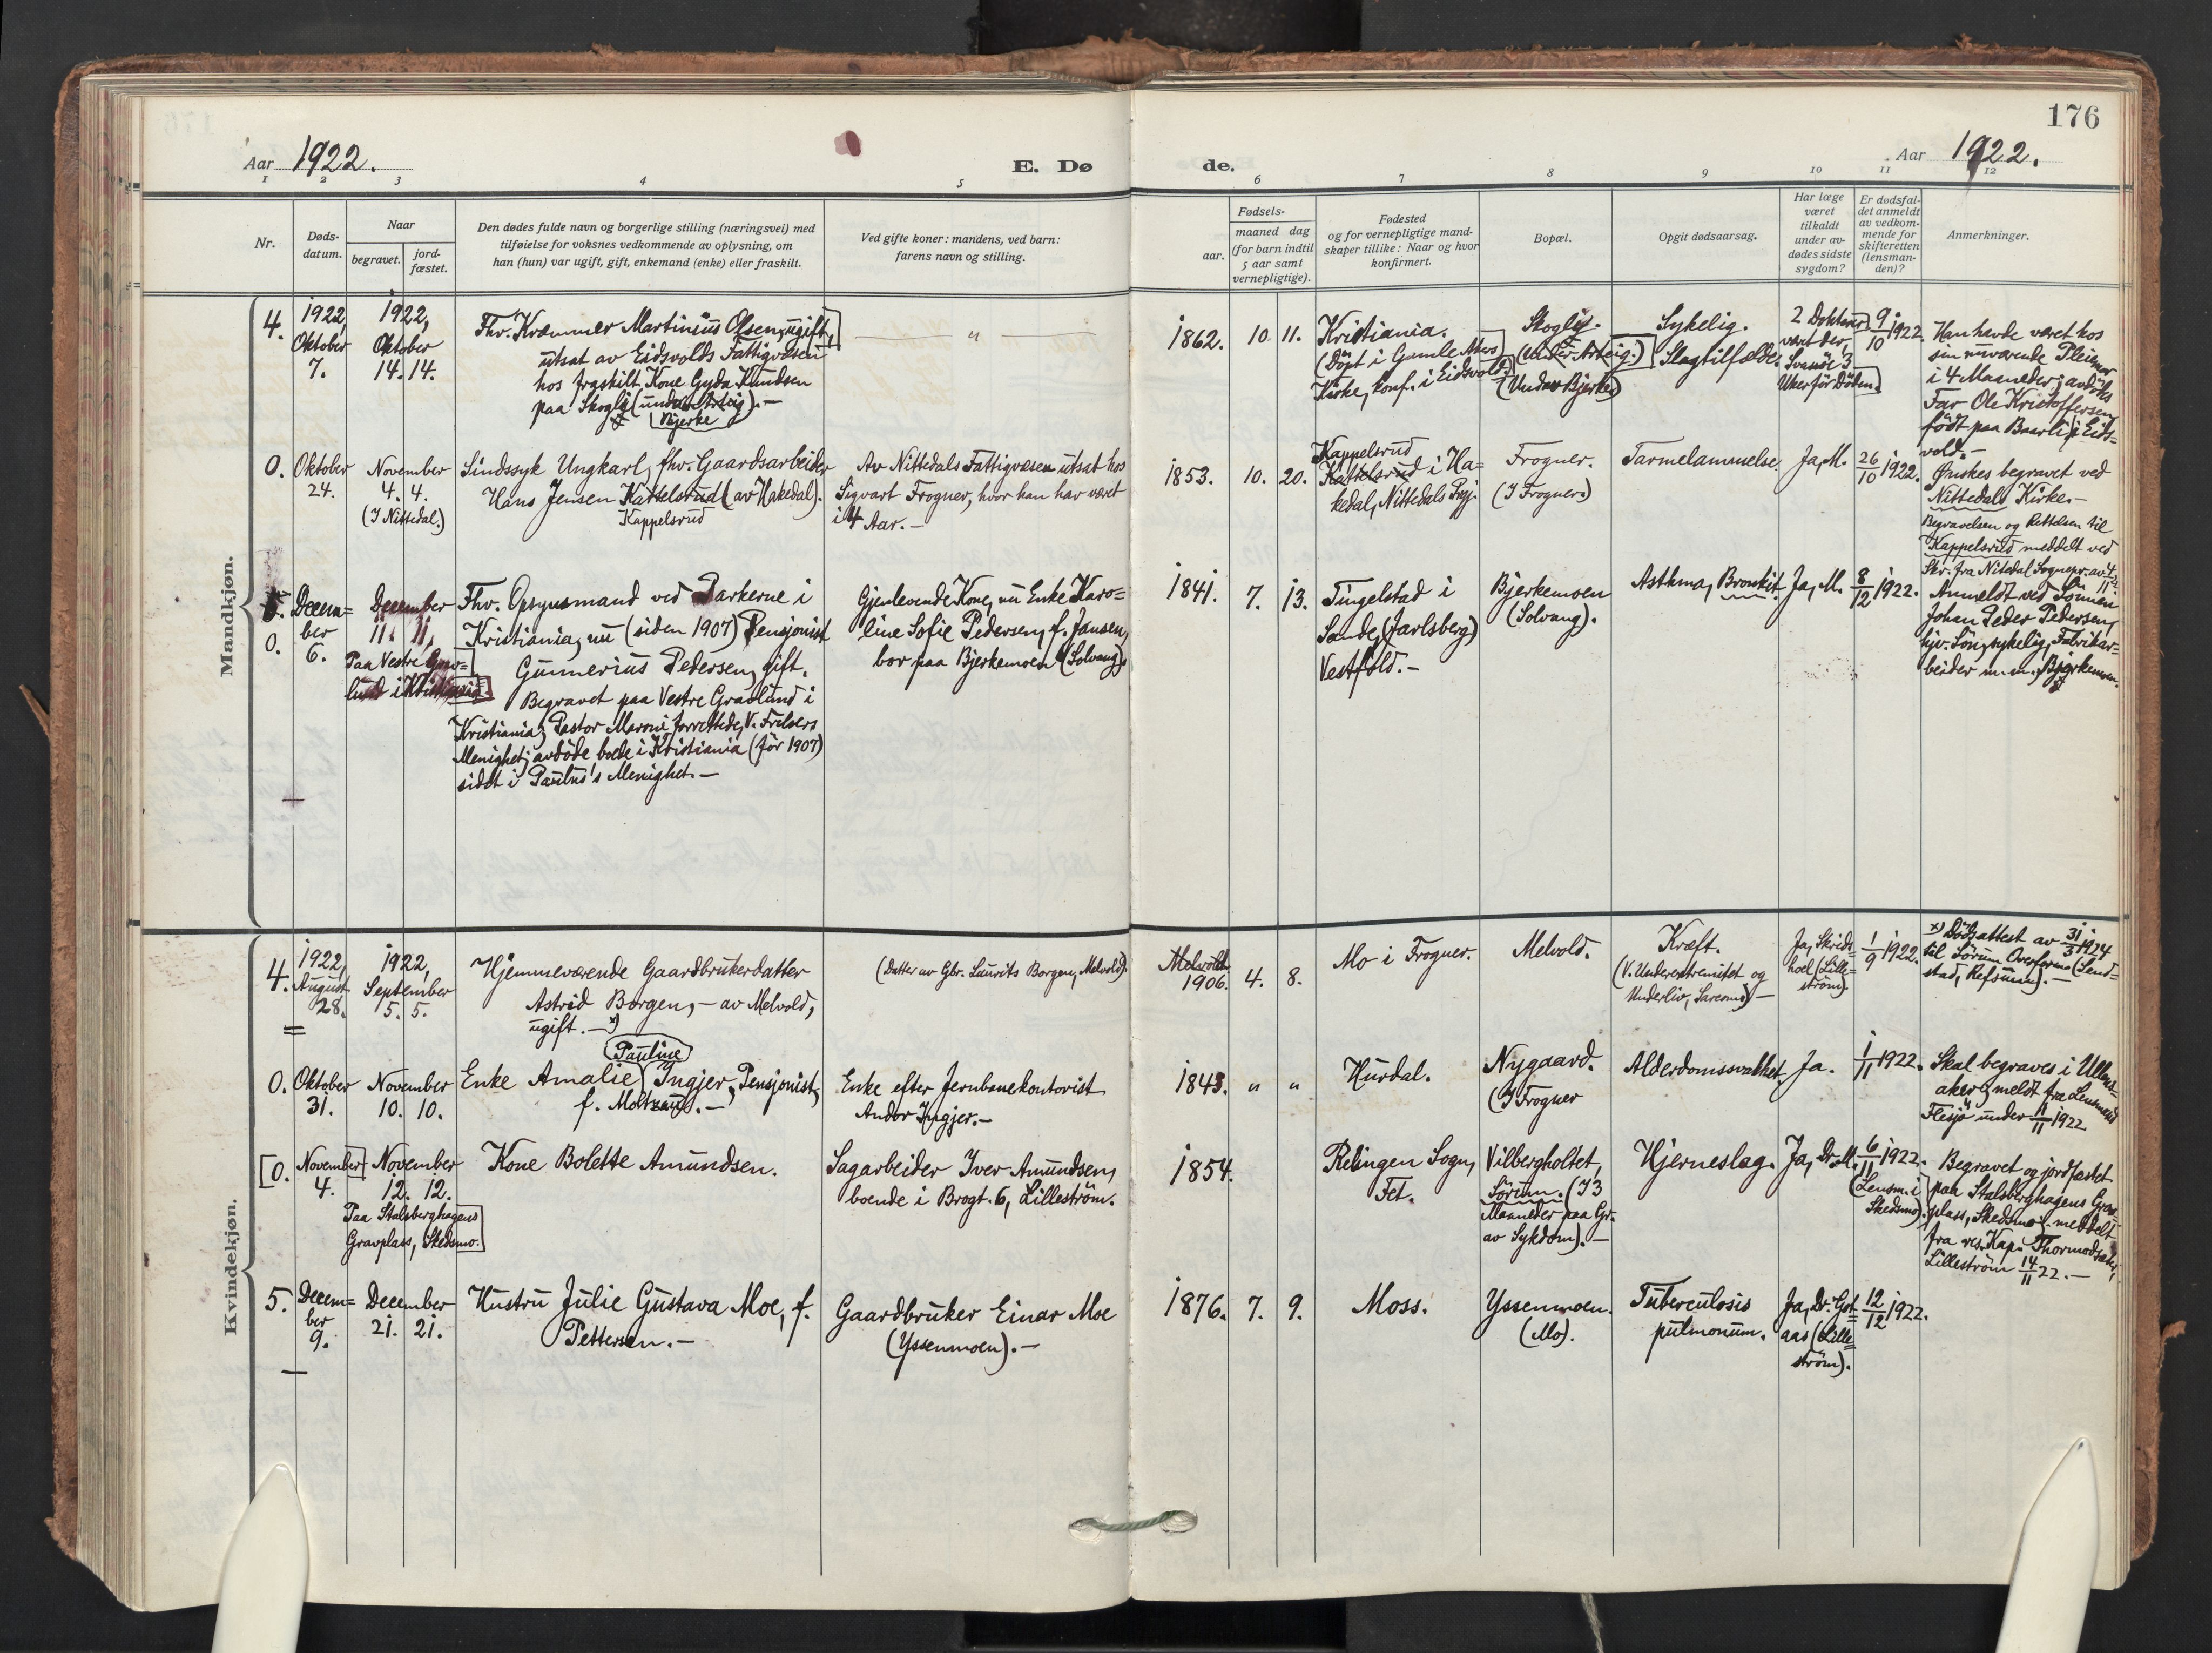 176
Aar 1922.
E. Dø
de.
Aar 1922.
1 2 3 4 5 6 7 8 9 10 11 12
Nr.
Døds-
datum.
Naar
begravet.
jord-
fæstet.
Den dødes fulde navn og borgerlige stilling (næringsvei) med
tilføielse for voksnes vedkommende av oplysning, om
han (hun) var ugift, gift, enkemand (enke) eller fraskilt.
Ved gifte koner: mandens, ved barn:
farens navn og stilling.
Fødsels-
aar.
maaned dag
(for barn indtil
5 aar samt
vernepligtige).
Fødested
og for vernepligtige mand-
skaper tillike: Naar og hvor
konfirmert.
Bopæl.
Opgit dødsaarsag.
Har læge
været
tilkaldt
under av-
dødes sidste
sygdom?
Er dødsfal-
det anmeldt
av vedkom-
mende for
skifteretten
(lensman-
den)?
Anmerkninger.
Mandkjøn.
4.
1922,
Oktober
7.
1922,
Oktober
14. 14.
Thv. Kræmmer Martinius Olsen, ugift,
utsat av Eidsvolds Fattigvæsen
hos fraskilt Kone Gyda Knudsen
paa Skogly (under Arteig).—
Bjerke
"
1862. 10 11.
Kristiania.
(Döpt i Gamle Akers
Kirke, konf. i Eidsvold.)
Skogly.
(under Arteig.)
(Under Bjerke)
Sykelig.
Slagtilfælde.
2 Doktorer
vært der,
Svanöe 3
Uker før Døden.
9/10 1922.
Han havde været hos
sin nuværende Pleiemor
i 4 Maaneder; avdödes
Far Ole Kristoffersen,
födt paa Baarli i Eids-
vold.—
0.
Oktober
24.
November
4. 4.
(I Nittedal.)
Sindssyk Ungkarl, fhv. Gaardsarbeider
Hans Jensen Kattelsrud (av Hakedal).
Kappelsrud
Av Nittedals Fattigvæsen utsat hos
Sigvart Frogner, hvor han har været
i 4 Aar.—
1853. 10. 20.
Kappelsrud
Kattelsrud i Ha-
kedal, Nittedals Prgj.
Frogner.
(I Frogner.)
Tarmelammelse.
Ja, M.
26/10 1922.
Ønskes begravet ved
Nittedals Kirke.—
Begravelsen og Rettelsen til
Kappelsrud meddelt ved
Skr. fra Nitedal Sognepr. av 4/11 22.
5.
0.
Decem-
ber
6.
December
11. 11.
Paa Vestre Grav-
lund i Kristiania
Thv. Opsynsmand ved Parkerne i
Kristiania, nu (siden 1907) Pensjonist
Gunnerius Pedersen, gift.
Begravet paa Vestre Gravlund i
Kristiania; Pastor Maroni forrettede, V. Frelsers
Menighet; avdöde boede i Kristiania (før 1907)
sidst i Paulus's Menighet.—
Gjenlevende Kone, nu Enke Karo-
line Sofie Pedersen, f. Jansen,
bor paa Bjerkemoen (Solvang).
1841. 7. 13.
Tingelstad i
Sande, (Jarlsberg)
Vestfold.—
Bjerkemoen
(Solvang).
Asthma, Bronkit.
Ja, M.
8/12 1922.
Anmeldt ved Sönnen
Johan Peder Pedersen,
hjv. Sön, sykelig, Fabrikar-
beider m.m., Bjerkemoen.
Kvindekjøn.
4.
1922,
August
28.
1922,
September
5. 5.
Hjemmeværende Gaardbrukerdatter
Astrid Borgen, - av Melvold,
ugift.— x)
(Datter av Gbr. Laurits Borgen, Melvold).
Melvold
1906. 4. 8.
Mo i Frogner.
Melvold.
Kræft.
(V. Underextremitet og
Underliv, Sarcoma)—
Ja, Skrids-
hoel (Lille-
ström).
1/9 1922.
x) Dödsattest av 31/3 1924
til Sörum Overforma (Send-
stad, Refsum).—
0.
Oktober
31.
November
10. 10.
Pauline
Enke Amalie Ingjer, Pensjonist,
f. Moltzau.—
Enke efter Jernbanekontorist
Andor Ingjer.—
1843. " "
Hurdal.
Nygaard.
(I Frogner
Alderdomssvakhet.
Ja.
1/11 1922.
Skal begraves i Ullens-
aker; meldt fra Lensmand
Flesjö under 1/11 1922.
[0.
November
4.
November
12. 12.
Paa Stalsberghagens
Gravplass, Skedsmo.
Kone Bolette Amundsen.
Sagarbeider Iver Amundsen,
boende i Brogt. 6, Lilleström.
1854.
Relingen Sogn,
Fet.
Vilbergholtet,
Sörum. (I 3
Maaneder paa Gr.
av Sykdom).—
Hjerneslag.
Ja, Dr. M.
6/11 1922.
(Lensm. i
Skedsmo).
Begravet og jordfæstet
paa Stalsberghagens Grav-
plass, Skedsmo, meddelt
fra res. Kap. Thormodsæter,
Lilleström 14/11 22.—
5.
Decem-
ber
9.
December
21. 21.
Hustru Julie Gustava Moe, f.
Pettersen.—
Gaardbruker Einar Moe
(Yssenmoen).—
1876. 7. 9.
Moss.
Yssenmoen.
(Mo).
Tuberculosis
pulmonum.
Ja, Dr. Got-
aas (Lille-
ström).
12/12 1922.